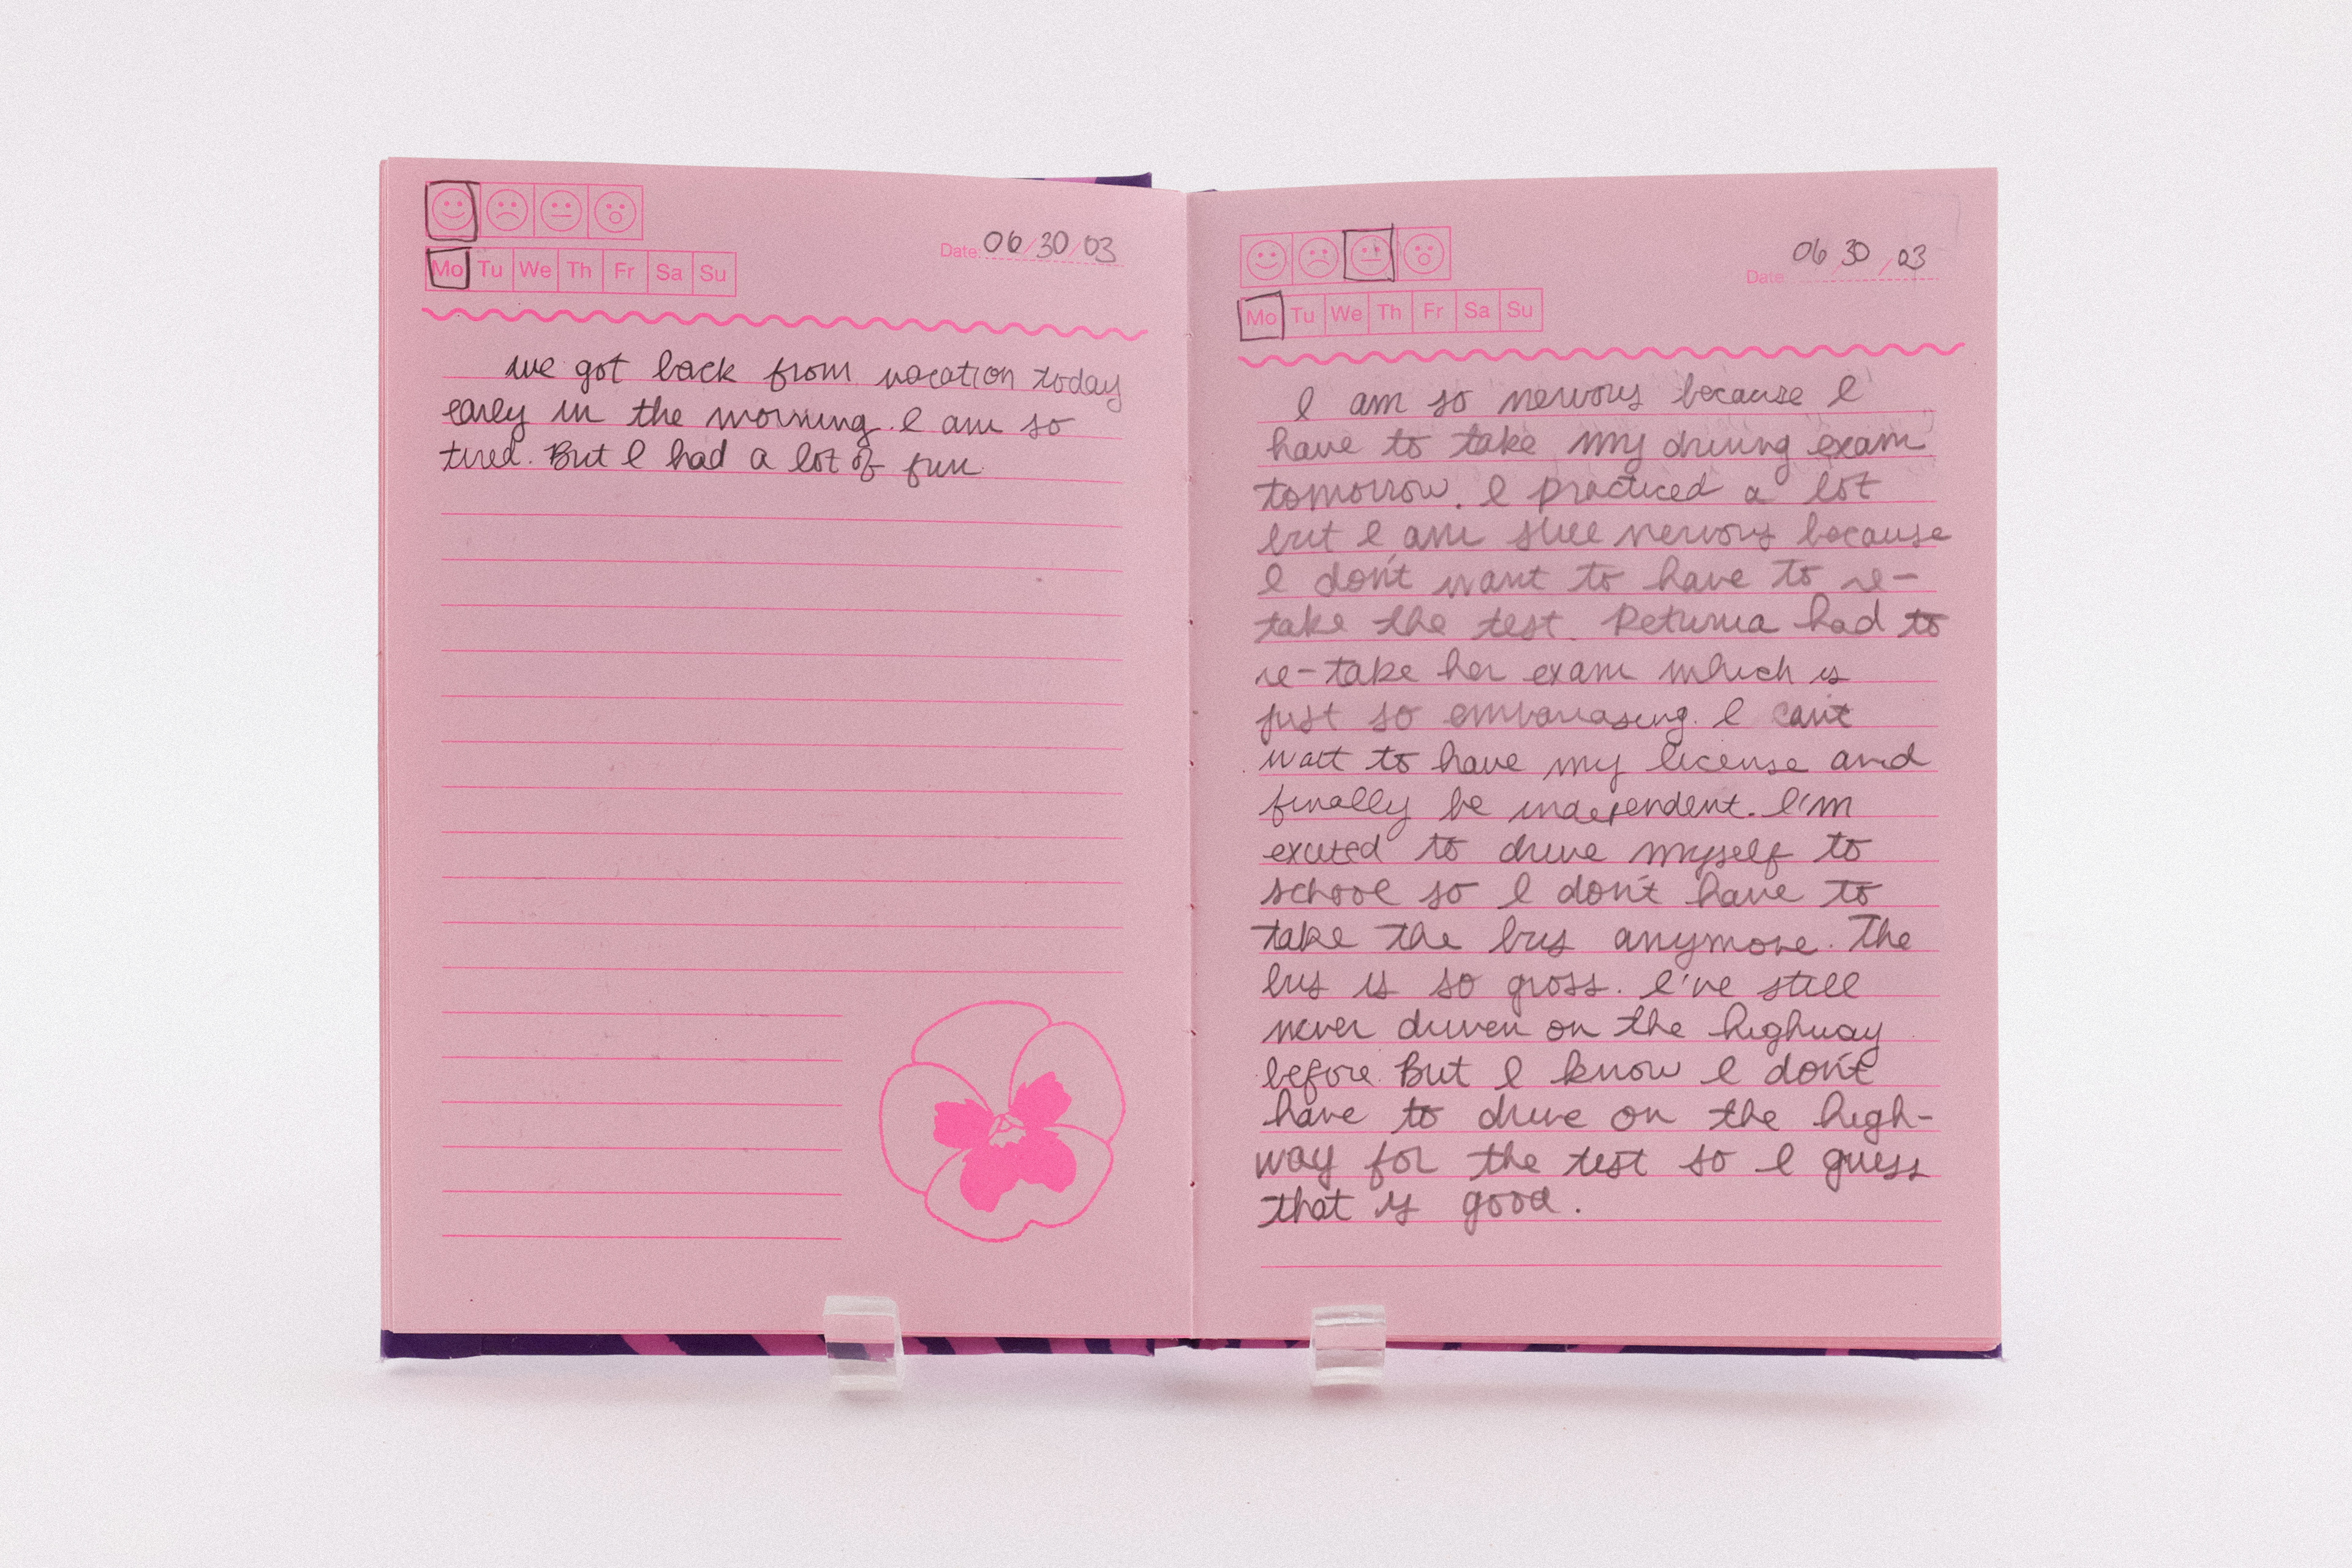 Mo Tu We Th Fr Sa Su
Date: 06/30/03
we got back from vacation today
early in the morning. I am so
tired. But I had a lot of fun
Date 06 30 / 03
Mo Tu We Th Fr Sa Su
I am so nervous because I
have to take my driving exam
tomorrow. I practiced a lot
but I am still nervous because
I don't want to have to re-
take the test. Petunia had to
re-take her exam which is
just so embarrasing. I can't
wait to have my license and
finally be independent. I'm
excited to drive myself to
school so I don't have to
take the bus anymore. The
bus is so gross. I've still
never driven on the highway
before. But I know I don't
have to drive on the high-
way for the test so I guess
that is good.